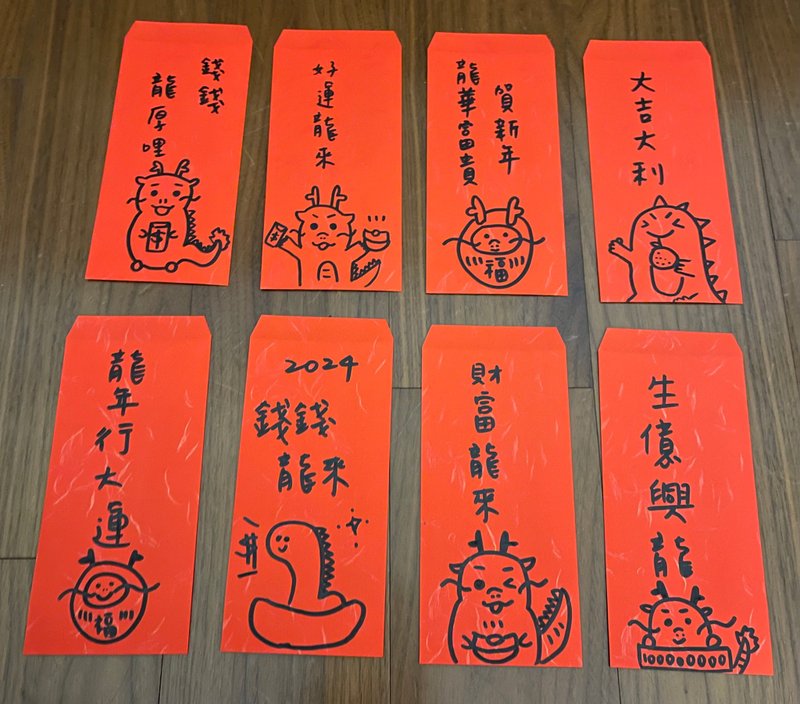 錢錢
龍厚哩
好運龍來
賀新年
龍華富貴
福
大吉大利
龍年行大運
福
2024
錢錢
龍來
財富龍來
生億興龍
100000000